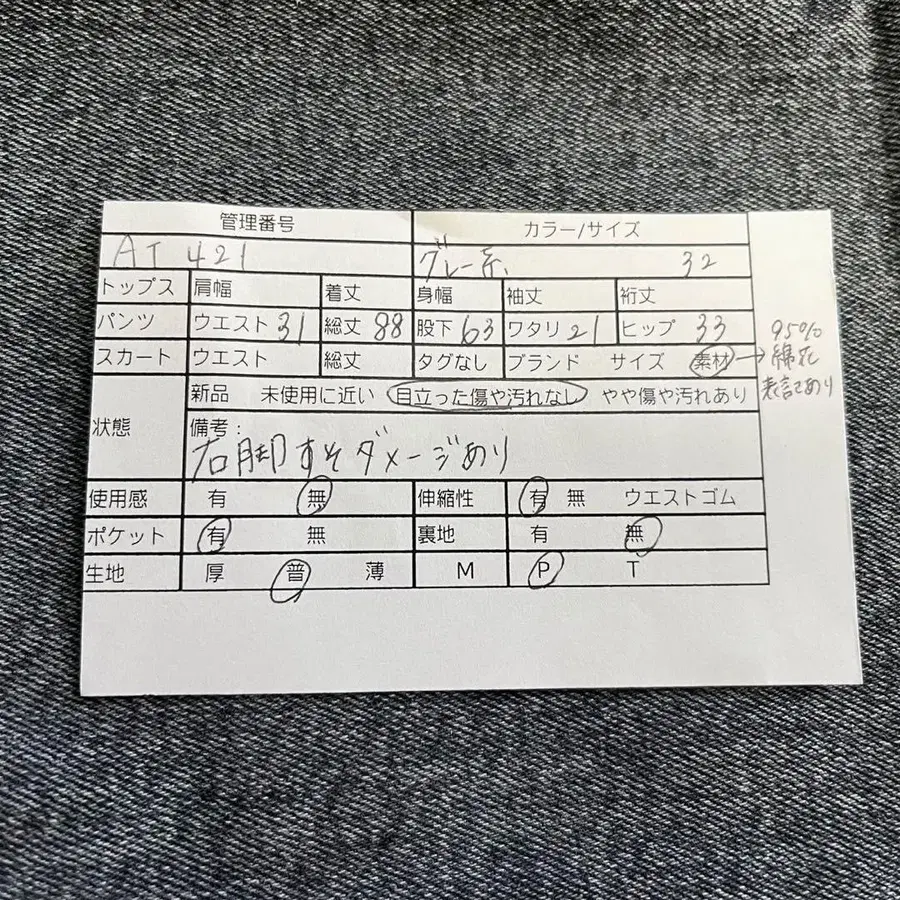 管理番号 カラー/サイズ
AT 421 グレー系、 32
トップス 肩幅 着丈 身幅 袖丈 裄丈
パンツ ウエスト 31 総丈 88 股下 63 ワタリ 21 ヒップ 33
スカート ウエスト 総丈 タグなし ブランド サイズ 素材 →
95%
綿花
表記あり
新品 未使用に近い 目立った傷や汚れなし やや傷や汚れあり
状態 備考:
右脚すそダメージあり
使用感 有 無 伸縮性 有 無 ウエストゴム
ポケット 有 無 裏地 有 無
生地 厚 普 薄 M P T